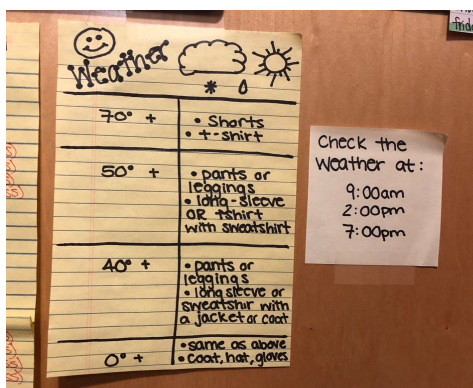 Weather
70° +
• Shorts
• t-shirt
50° +
• pants or
leggings
• long-sleeve
OR tshirt
with sweatshirt
40° +
• pants or
leggings
• long sleeve or
sweatshir with
a jacket or coat
0° +
• same as above
• coat, hat, gloves
Check the
Weather at:
9:00am
2:00pm
7:00pm